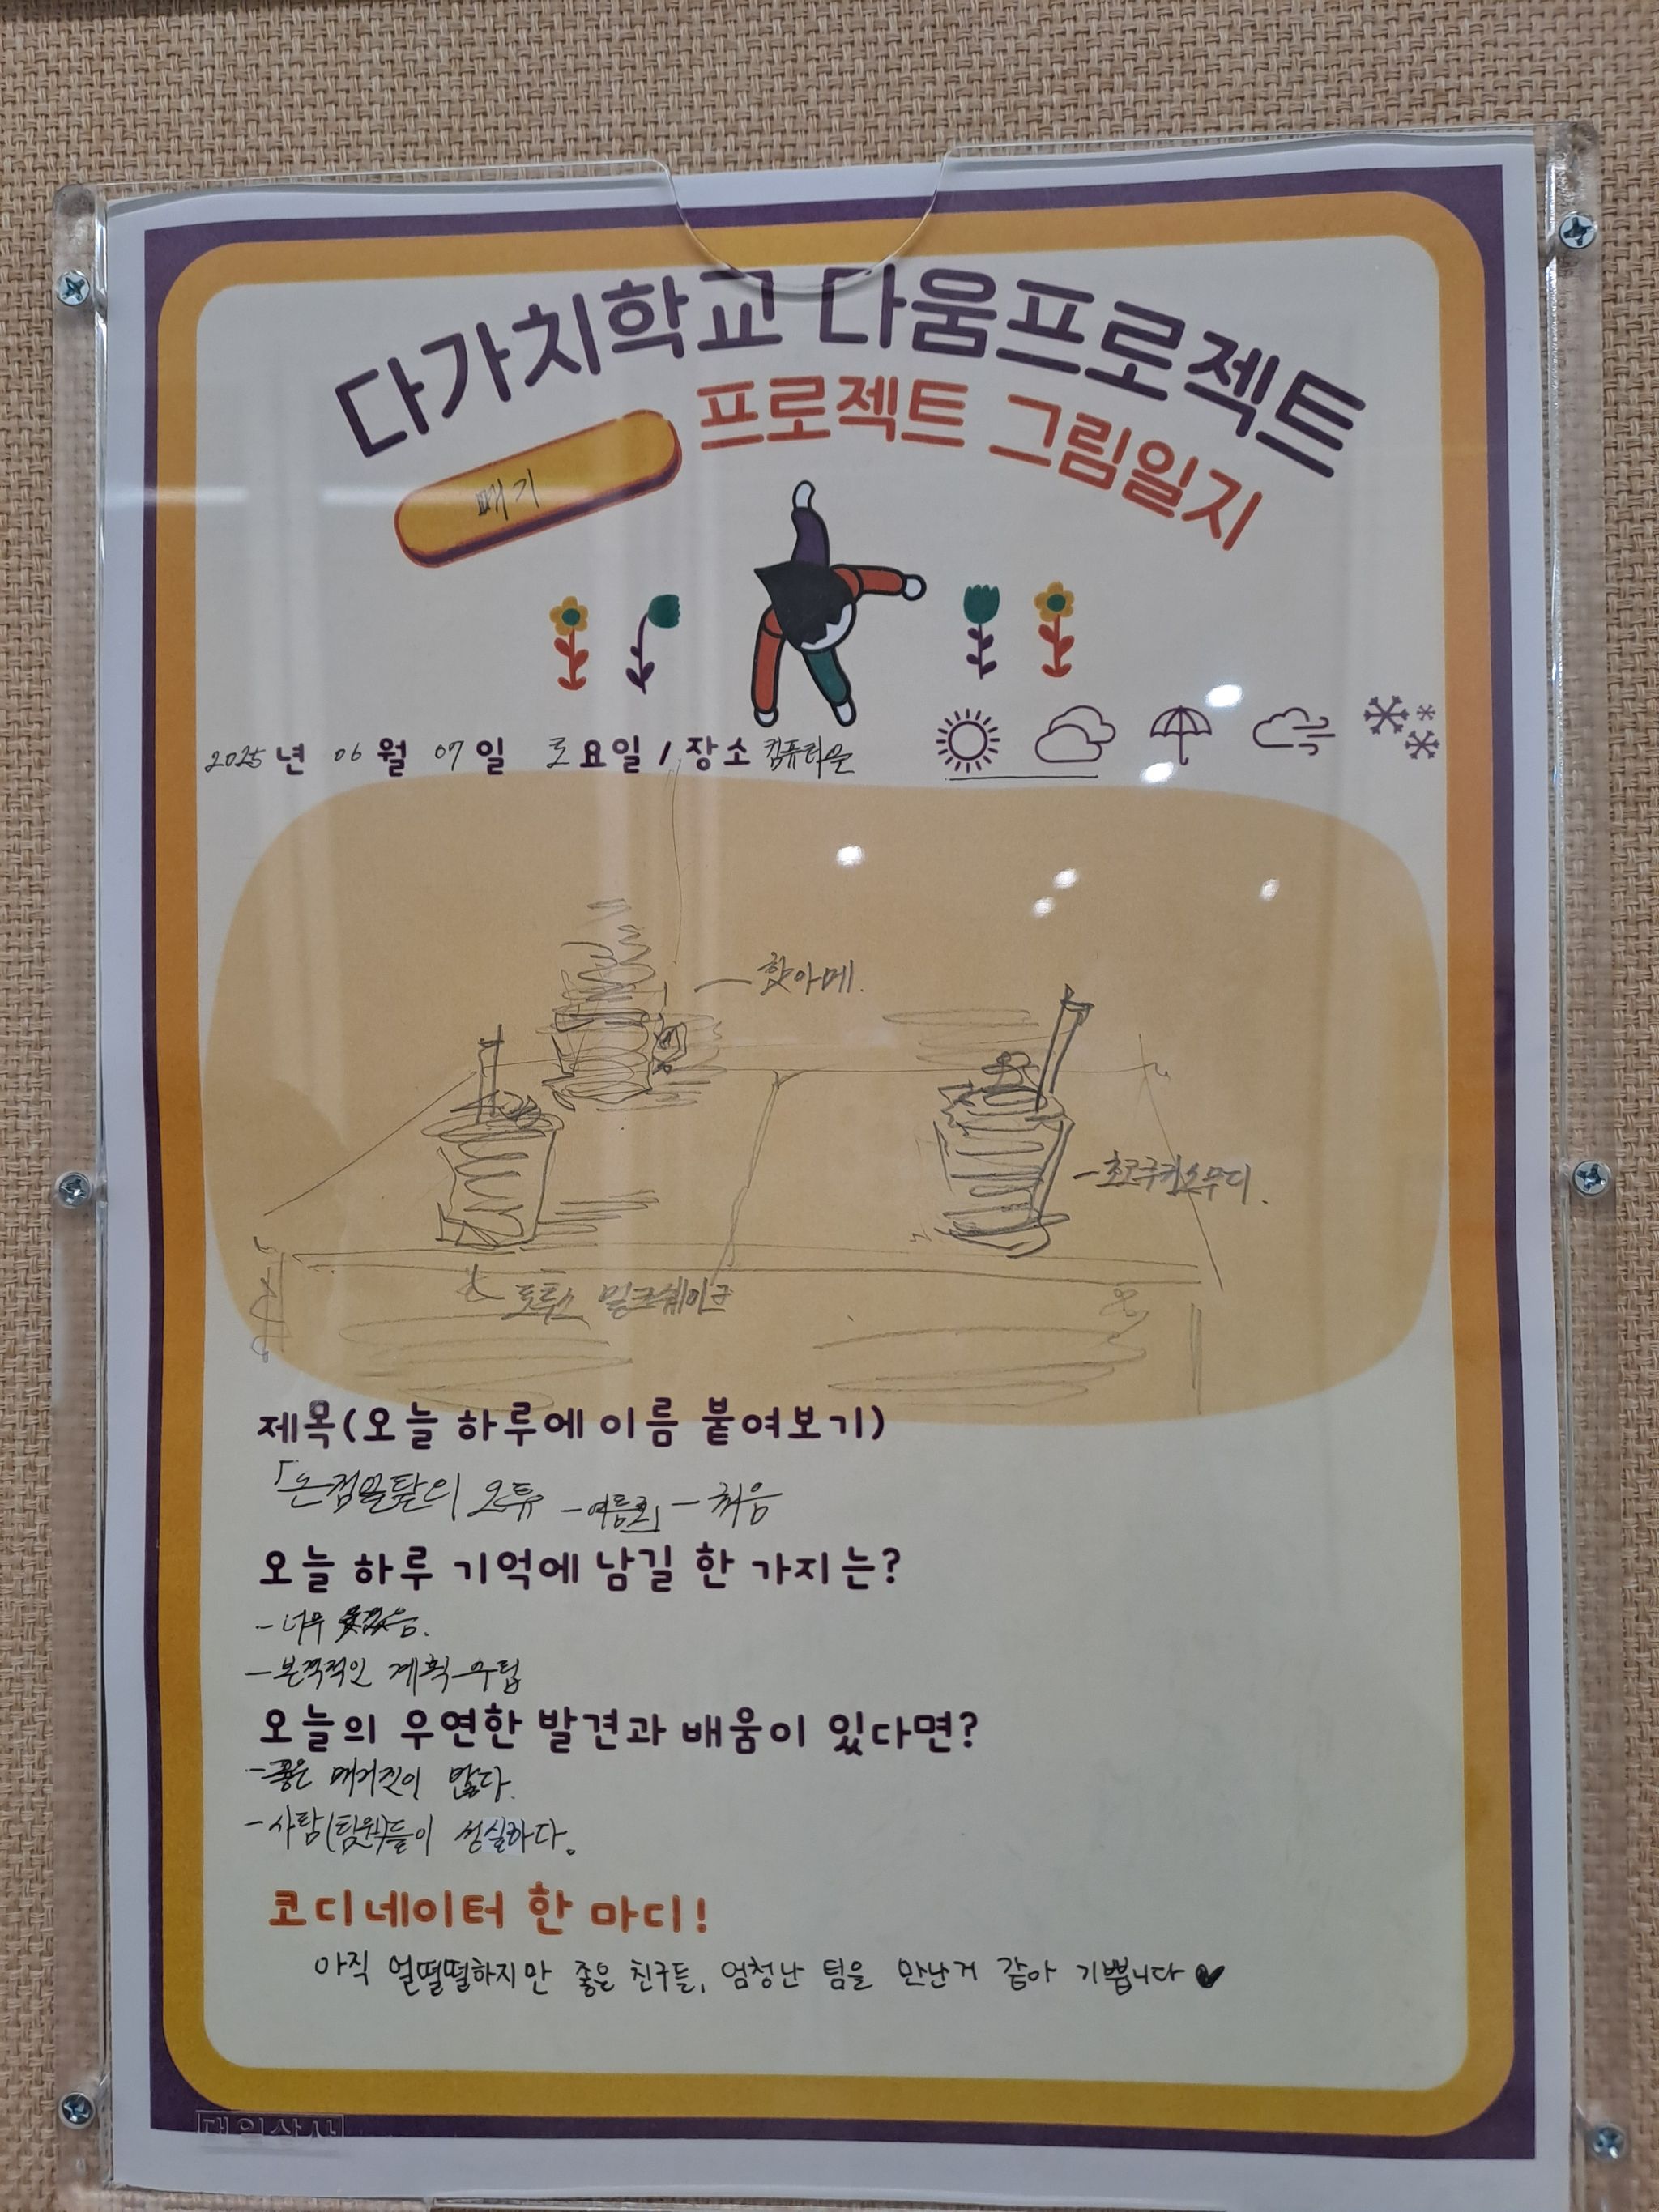 다가치학교 다움프로젝트
프로젝트 그림일지
빼기
2025년 06월 07일 토요일 / 장소 컴퓨타운
핫아메.
초코쿠키스무디.
토투스 밀크쉐이크
제목(오늘 하루에 이름 붙여보기)
오튜 - 처음
오늘 하루 기억에 남길 한 가지는?
- 너무
- 본격적인 계획수립
오늘의 우연한 발견과 배움이 있다면?
- 좋은 매거진이 많다.
- 사람(팀원)들이 성실하다.
코디네이터 한 마디!
아직 얼떨떨하지만 좋은 친구들, 엄청난 팀을 만난거 같아 기쁩니다♥
대일상사